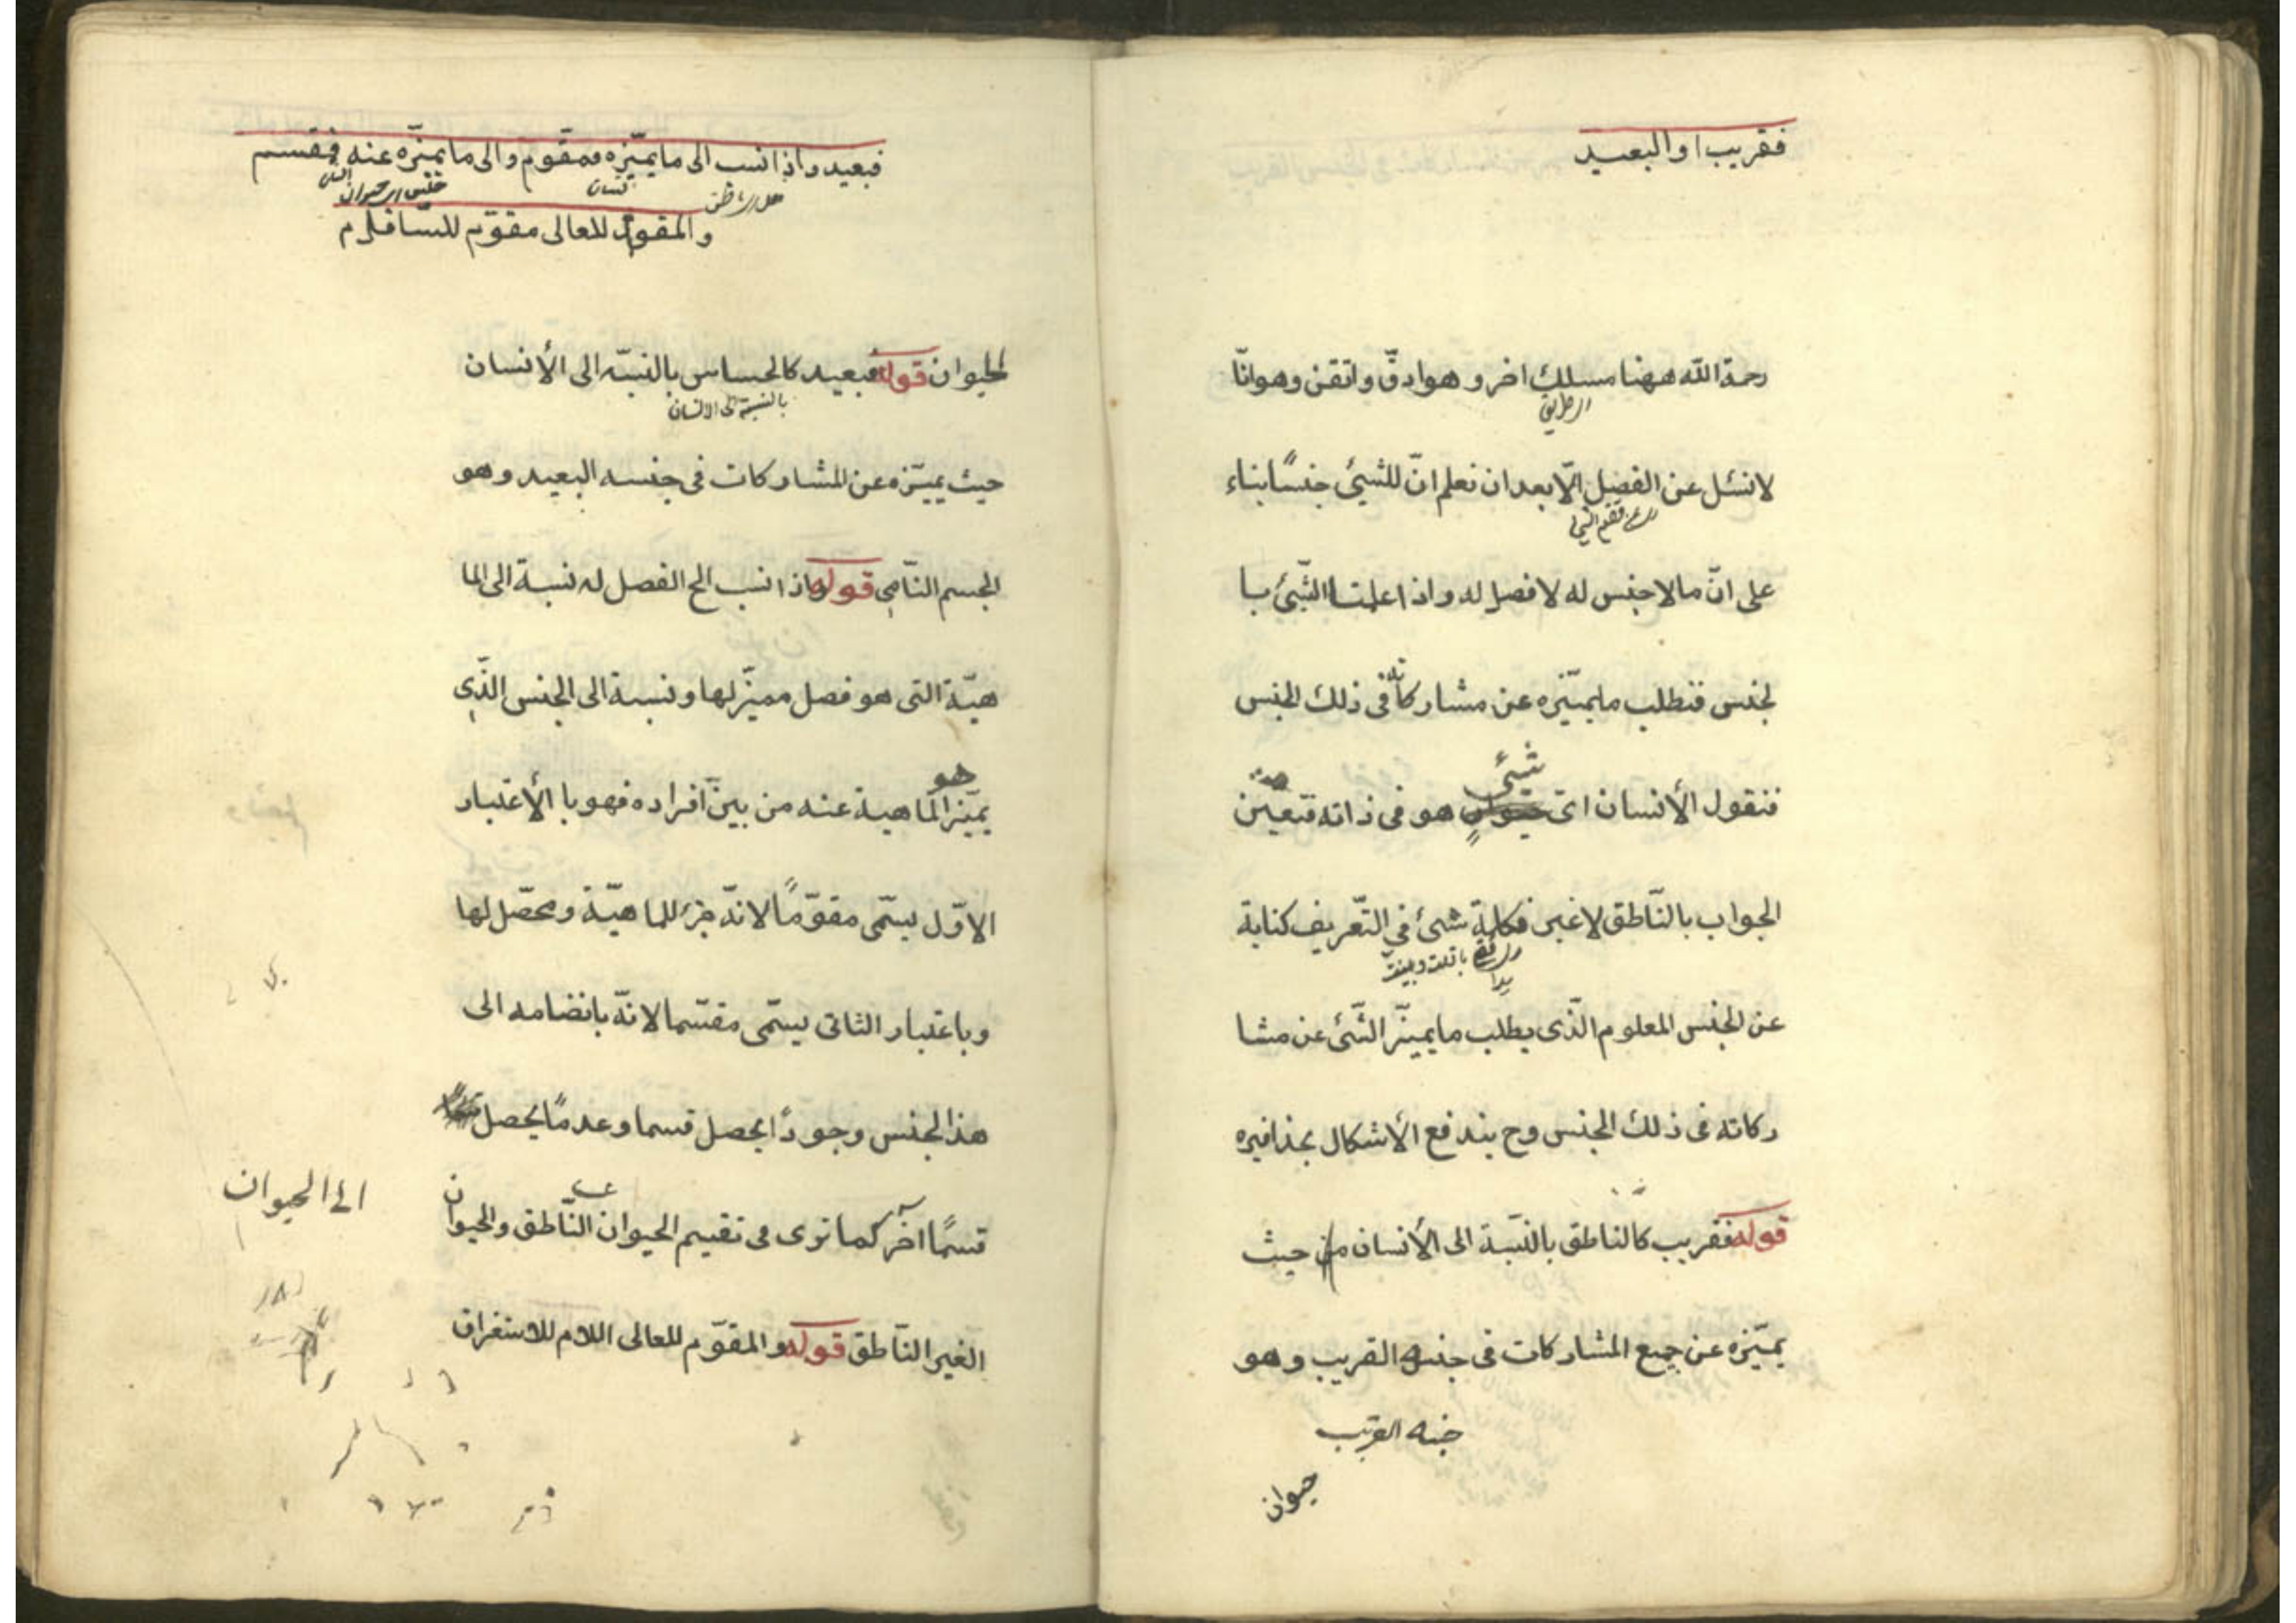 فقريب او البعيد
رحمة الله ههنا مسلك اخر و هو ادقّ و اتقن و هو انّا
لا نسئل عن الفصل الّا بعد ان نعلم انّ للشيئ جنسًا بناء
على انّ ما لا جنس له لا فصل له و اذا علمنا الشّيئ با
لجنس فنطلب ما يميّزه عن مشاركاته فى ذلك الجنس
شيئى
فنقول الأنسان اىّ هو فى ذاته فتعيّن
الجواب بالنّاطق لا غير فكلمة شيئ في التّعريف كناية
عن الجنس المعلوم الّذى يطلب ما يميّز الشّيئ عن مشا
ركاته فى ذلك الجنس و ح يندفع الأشكال بحذافيره
قوله فقريب كالناطق بالنّسبة الى الأنسان من حيث
يميّزه عن جميع المشاركات فى جنسه القريب و هو
جنسه القريب
حيوان
فبعيد و اذا نسب الى ما يميّزه فمقوم و الى ما يميّزه عنه فمقسم
انسان
و المقوم للعالى مقوّم للسّافل م
الحيوان قوله فبعيد كالحساس بالنسبّه الى الأنسان
بالنسبة الى الانسان
حيث يميّزه عن المشاركات فى جنسه البعيد و هو
الجسم النّامى قوله و اذا نسب الخ الفصل له نسبة الى الما
هيّة التى هو فصل مميّز لها و نسبة الى الجنس الّذى
هو
يميّز الماهية عنه من بين افراده فهو با الأعتبار
الاوّل يسمّى مقوّمًا لانّه جزء للماهيّة و محصّل لها
و باعتبار الثانى يسمّى مقسّما لانّه بانضمامه الى
هذ الجنس وجودًا يحصل قسما و عدمًا يحصل
قسمًا آخر كما ترى فى تقسيم الحيوان النّاطق و الحيوان
الى الحيوان
الغير النّاطق قوله و المقوّم للعالى اللام للاستغراق